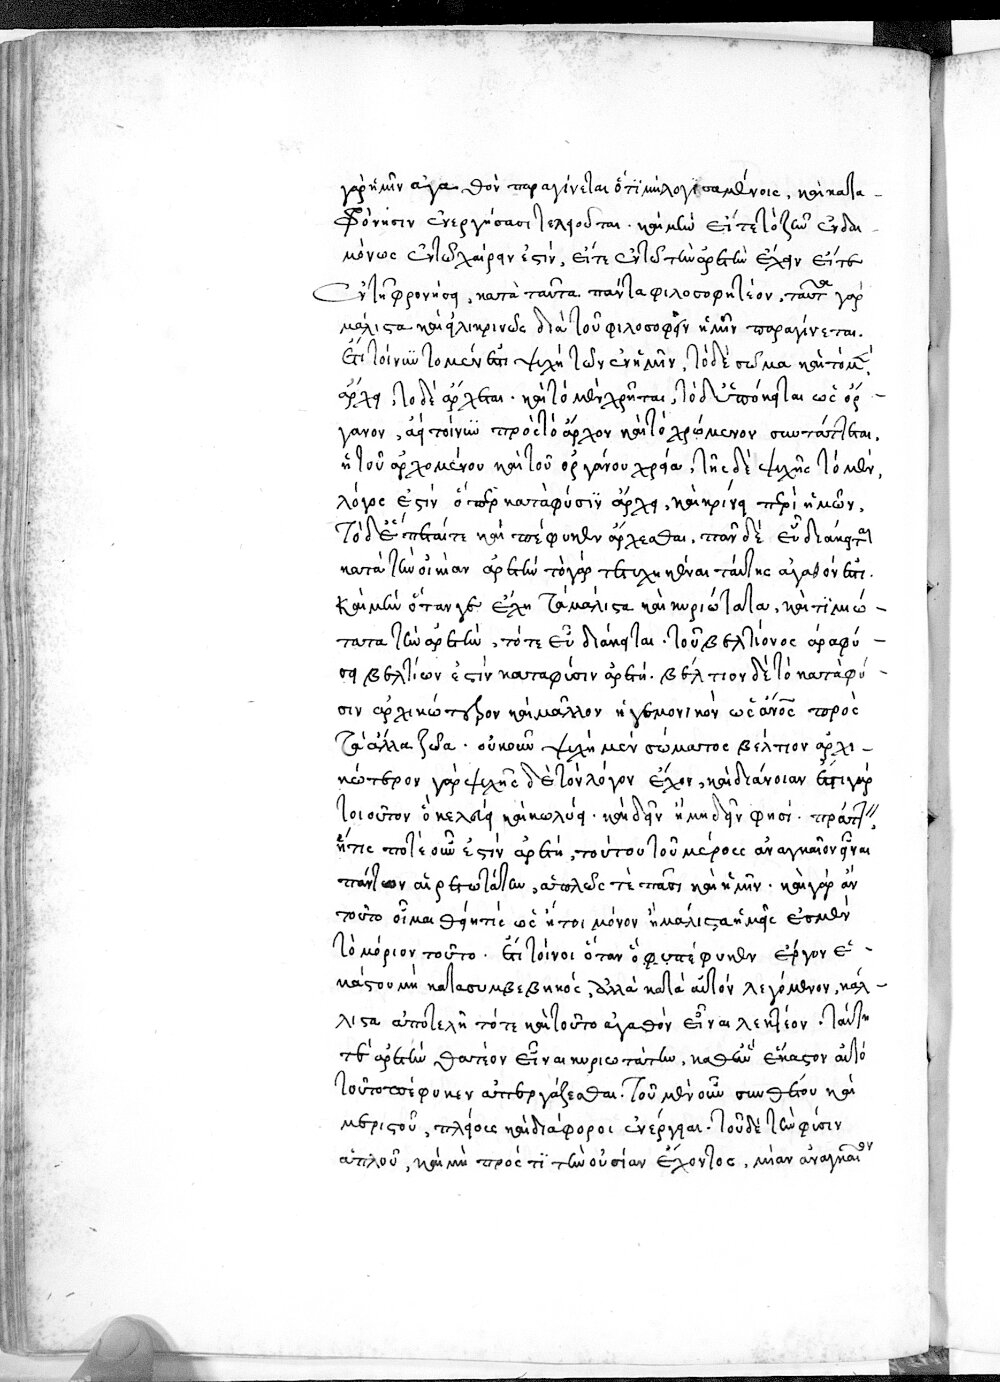 γὰρ ἡμῖν ἀγαθὸν παραγίνεται ὅ τι μὴ λογισαμένοις, καὶ κατα-
φρόνησιν ἐνεργήσασι τελειοῦται. καὶ μὴν εἴτε τὸ ζῆν εὐδαι-
μόνως ἐν τῶ χαίρειν ἐστὶν, εἴτε ἐν τῶ τὴν ἀρετὴν ἔχειν εἴτε
ἐν τῆ φρονήσει, κατὰ ταῦτα πάντα φιλοσοφητέον, ταῦτα γὰρ
μάλιστα καὶ εἰλικρινῶς διὰ τοῦ φιλοσοφεῖν ἡμῖν παραγίνεται.
ἔτι τοίνυν τὸ μέν ἐστι ψυχὴ τῶν ἐν ἡμῖν, τὸ δὲ σῶμα καὶ τὸ μὲν
ἄρχει, τὸ δὲ ἄρχεται. καὶ τὸ μὲν χρῆται, τὸ δ' ὑπόκειται ὡς ὄρ-
γανον, ἀεὶ τοίνυν πρὸς τὸ ἄρχον καὶ τὸ χρώμενον συντάττεται,
ἡ τοῦ ἀρχομένου καὶ τοῦ ὀργάνου χρεία, τῆς δὲ ψυχῆς τὸ μὲν,
λόγος ἐστὶν ὅπερ κατὰ φύσιν ἄρχει, καὶ κρίνει περὶ ἡμῶν,
τὸ δ' ἕπεταί τε καὶ πέφυκεν ἄρχεσθαι, πᾶν δὲ εὖ διάκειται
κατὰ τὴν οἰκείαν ἀρετήν τὸ γὰρ τετυχηκέναι ταύτης ἀγαθόν ἐστι.
καὶ μὴν ὅταν γε ἔχη τὰ μάλιστα καὶ κυριώτατα, καὶ τιμιώ-
τατα τὴν ἀρετὴν, τότε εὖ διάκειται. τοῦ βελτίονος ἄρα φύ-
σει βελτίων ἐστὶν κατὰ φύσιν ἀρετή. βέλτιον δὲ τὸ κατὰ φύ-
σιν ἀρχικώτερον καὶ μᾶλλον ἡγεμονικὸν ὡς ἄνος πρὸς
τὰ ἄλλα ζῶα. οὐκοῦν ψυχὴ μὲν σώματος βέλτιον ἀρχι-
κώτερον γὰρ ψυχῆς δὲ τὸ λόγον ἔχον, καὶ διάνοιαν ἔστι γὰρ
τοιοῦτον ὃ κελεύει καὶ κωλύει. καὶ δεῖν ἢ μὴ δεῖν φησί. πράττειν,
ἥτις ποτὲ οὖν ἐστὶν ἀρετὴ, τούτου τοῦ μέρους ἀναγκαῖον εἶναι
πάντων αἱρετωτάτην, ἁπλῶς τὲ πᾶσι καὶ ἡμῖν. καὶ γὰρ ἂν
τοῦτο οἶμαι θείη τίς ὡς ἤτοι μόνον ἢ μάλιστα ἡμεῖς ἐσμὲν
τὸ μόριον τοῦτο. ἔτι τοίνυν ὅταν ὃ πέφυκεν ἔργον ἑ-
κάστου μὴ κατασυμβεβηκός, ἀλλὰ κατὰ αὑτὸν λεγόμενον, κάλ-
λιστα ἀποτελῆ τότε καὶ τοῦτο ἀγαθὸν εἶναι λεκτέον. ταύτη
τε ἀρετὴν θατέον εἶναι κυριωτάτην, καθ' ἣν ἕκαστον αὐτὸ
τοῦτο πέφυκεν ἀπεργάζεσθαι. τοῦ μὲν οὖν συνθέτου καὶ
μεριστοῦ, πλείους καὶ διάφοροι ἐνέργειαι. τοῦ δὲ τὴν φύσιν
ἁπλοῦ, καὶ μὴ πρός τι τὴν οὐσίαν ἔχοντος, μίαν ἀναγκαῖον